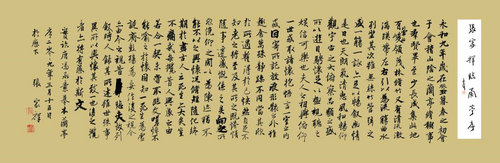 張宗祥臨蘭亭序
永和九年歲在癸丑暮春之初會
于會稽山陰之蘭亭脩稧事
也羣賢畢至少長咸集此地
有崇山峻領茂林脩竹又有清流激
湍暎帶左右引以為流觴曲水
列坐其次雖無絲竹管弦之
盛一觴一詠亦足以暢敘幽情
是日也天朗氣清惠風和暢仰
觀宇宙之大俯察品類之盛
所以遊目騁懷足以極視聽之
娛信可樂也夫人之相與俯仰
一世或取諸懷抱悟言一室之內
或因寄所託放浪形骸之外雖
趣舍萬殊靜躁不同當其欣
於所遇暫得於己怏然自足不
知老之將至及其所之既惓情
隨事遷感慨係之矣向之所
欣俛仰之間以為陳迹猶不
能不以之興懷況脩短隨化終
期於盡古人云死生亦大矣豈
不痛哉每攬昔人興感之由
若合一契未嘗不臨文嗟悼不
能喻之於懷固知一死生為虛
誕齊彭殤為妄作後之視今
亦由今之視昔悲夫故列
敘時人錄其所述雖世殊事
異所以興懷其致一也後之攬
者亦將有感於斯文
九年三月十三日
臨唐馮承素摹本蘭亭
於歷下 張宗祥